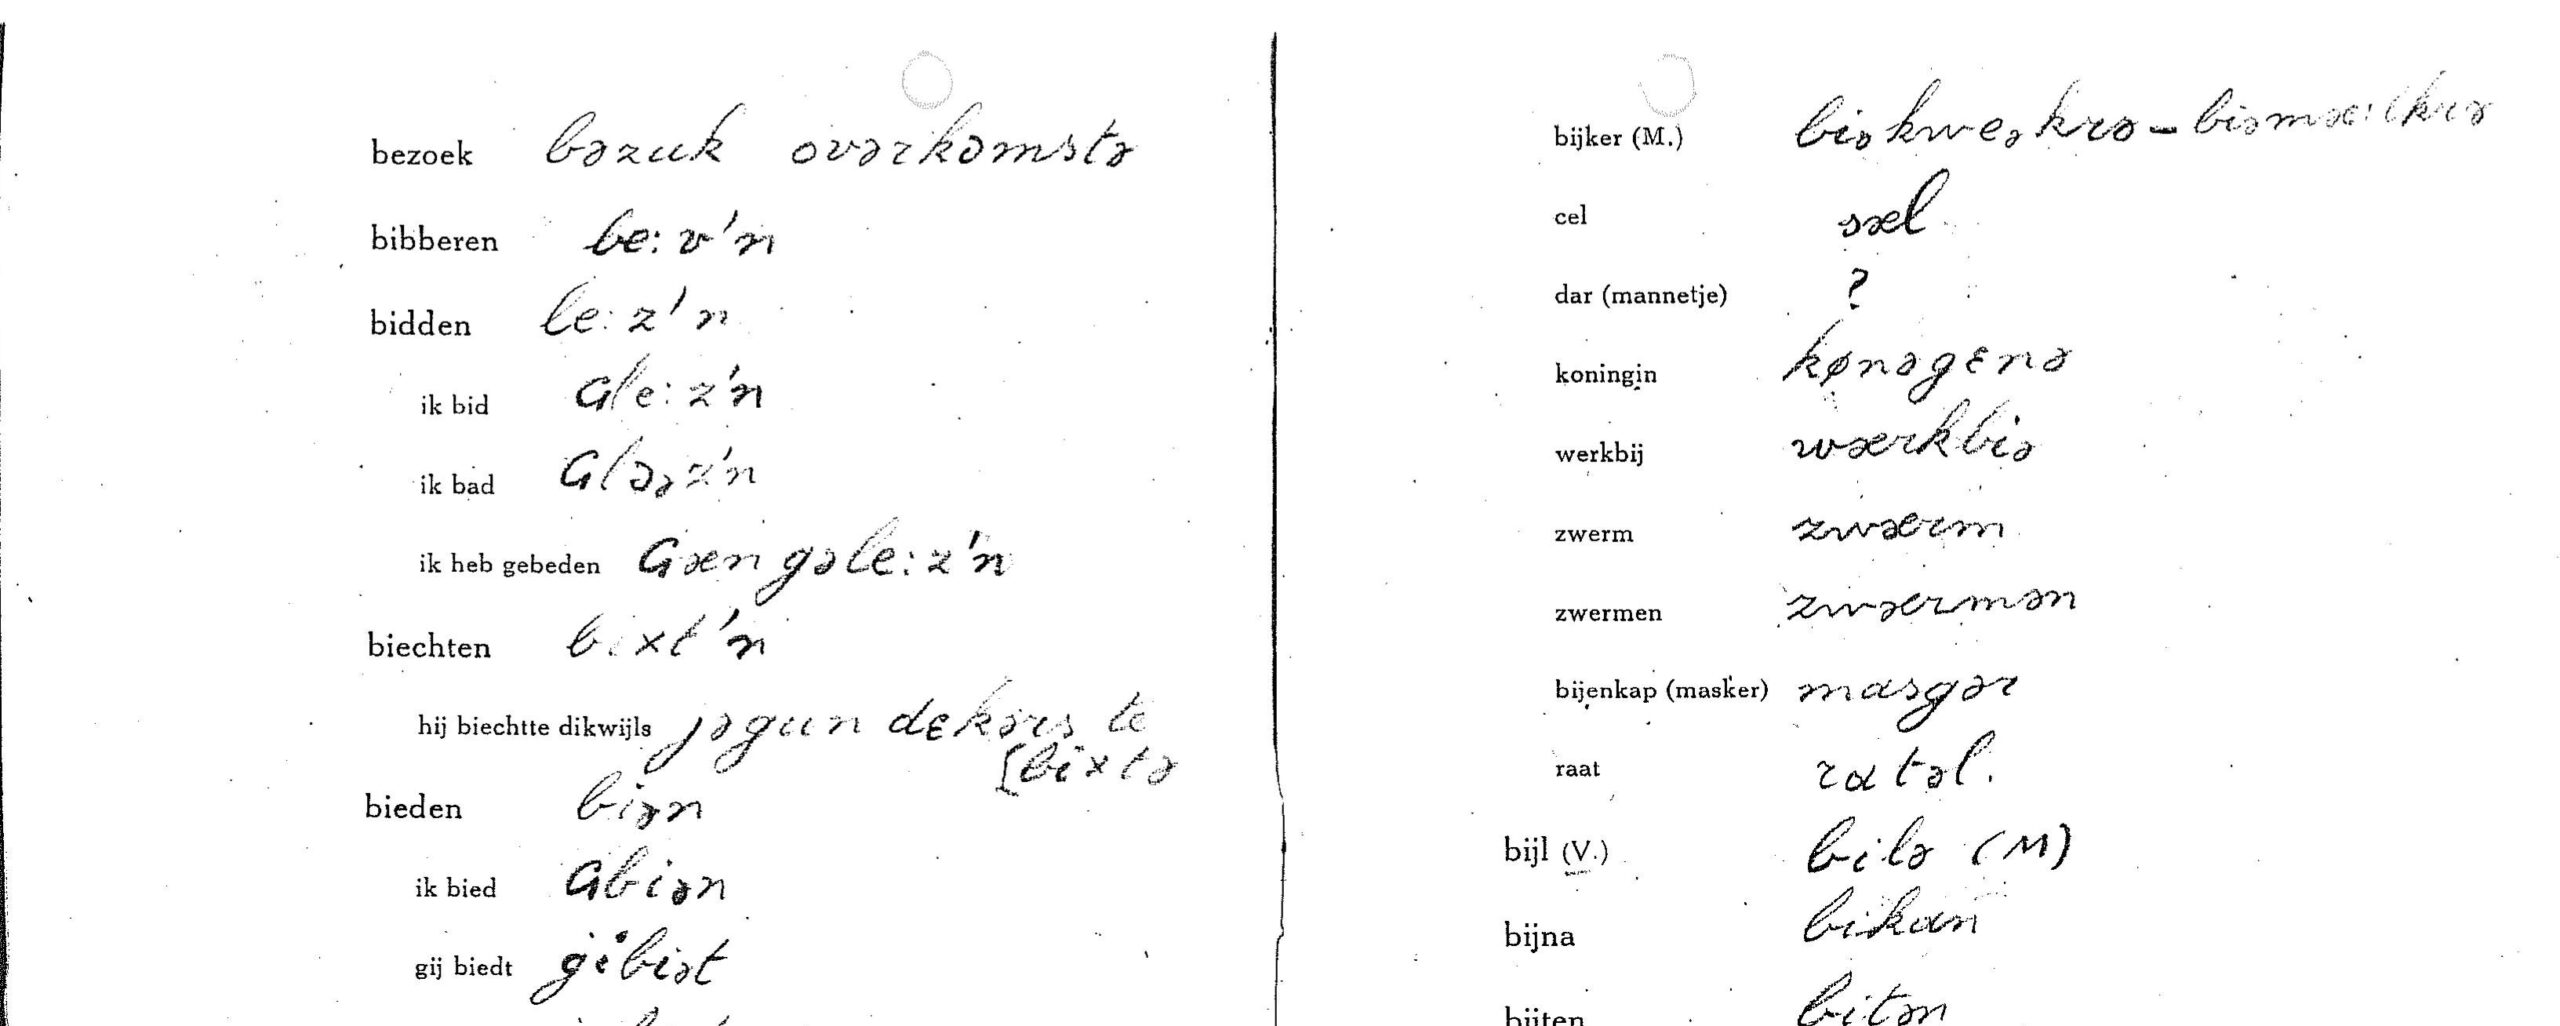 bezoek bəzuk ovərkomstə
bibberen be:v'n
bidden le:z'n
ik bid Gle:z'n
ik bad Glɔəz'n
ik heb gebeden Gæn gəle:z'n
biechten bixt'n
hij biechtte dikwijls jəgun dɛkərs te
[bixtə
bieden biən
ik bied Gbiən
gij biedt gibiət
bijker (M.) biəkweəkrə – biəmæ:lkrə
cel sæl
dar (mannetje) ?
koningin kønəgɛnə
werkbij wærkbiə
zwerm zwærm
zwermen zwærmən
bijenkap (masker) masgər
raat ratəl.
bijl (V.) bilə (M)
bijna bikan
bijten bitən